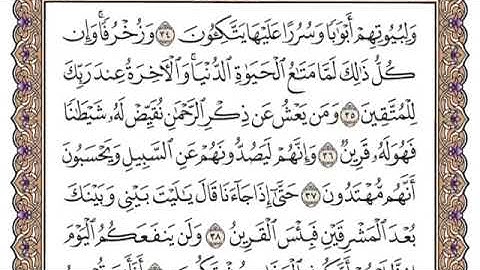 وَلِبُيُوتِهِمْ أَبْوَٰبًا وَسُرُرًا عَلَيْهَا يَتَّكِـُٔونَ ٣٤ وَزُخْرُفًا ۚ وَإِن
كُلُّ ذَٰلِكَ لَمَّا مَتَـٰعُ ٱلْحَيَوٰةِ ٱلدُّنْيَا ۚ وَٱلْـَٔاخِرَةُ عِندَ رَبِّكَ
لِلْمُتَّقِينَ ٣٥ وَمَن يَعْشُ عَن ذِكْرِ ٱلرَّحْمَـٰنِ نُقَيِّضْ لَهُۥ شَيْطَـٰنًا
فَهُوَ لَهُۥ قَرِينٌ ٣٦ وَإِنَّهُمْ لَيَصُدُّونَهُمْ عَنِ ٱلسَّبِيلِ وَيَحْسَبُونَ
أَنَّهُم مُّهْتَدُونَ ٣٧ حَتَّىٰٓ إِذَا جَآءَنَا قَالَ يَـٰلَيْتَ بَيْنِى وَبَيْنَكَ
بُعْدَ ٱلْمَشْرِقَيْنِ فَبِئْسَ ٱلْقَرِينُ ٣٨ وَلَن يَنفَعَكُمُ ٱلْيَوْمَ